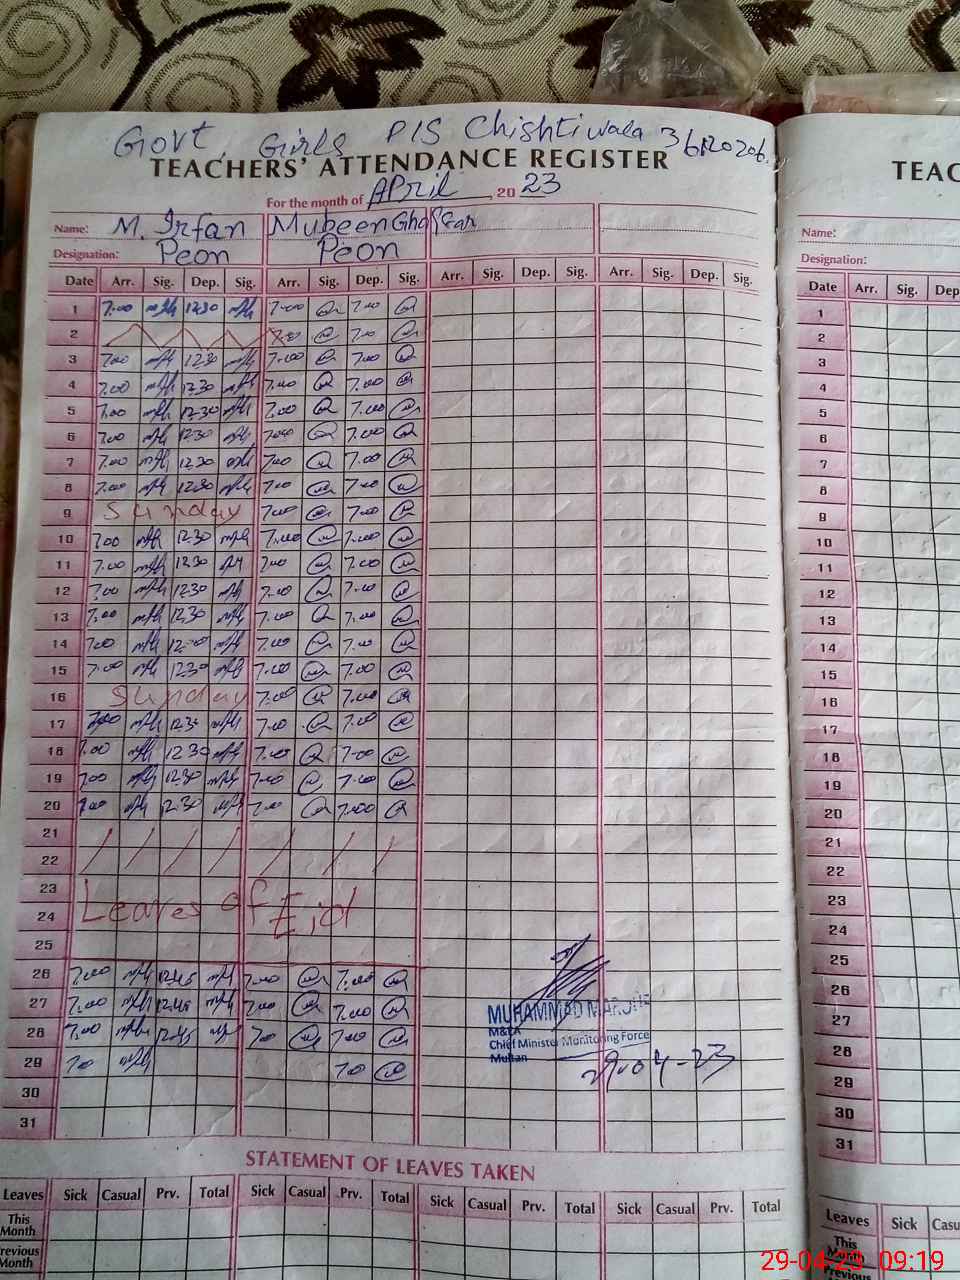 Govt. Girls P/S Chishtiwala 36120206.
TEACHERS' ATTENDANCE REGISTER
For the month of April, 2023
Name: M. Irfan Mubeen Ghaffar
Designation: Peon Peon
Date Arr. Sig. Dep. Sig. Arr. Sig. Dep. Sig. Arr. Sig. Dep. Sig. Arr. Sig. Dep. Sig.
1 7.00 12.30 7.00 7.00
2 7.00 7.00
3 7.00 12.30 7.00 7.00
4 7.00 12.30 7.00 7.00
5 7.00 12.30 7.00 7.00
6 7.00 12.30 7.00 7.00
7 7.00 12.30 7.00 7.00
8 7.00 12.30 7.00 7.00
9 Sunday 7.00 7.00
10 7.00 12.30 7.00 7.00
11 7.00 12.30 7.00 7.00
12 7.00 12.30 7.00 7.00
13 7.00 12.30 7.00 7.00
14 7.00 7.00 7.00
15 7.00 12.30 7.00 7.00
16 Sunday 7.00 7.00
17 7.00 12.30 7.00 7.00
18 7.00 12.30 7.00 7.00
19 7.00 12.30 7.00 7.00
20 7.00 12.30 7.00 7.00
21
22
23
24 Leaves of Eid
25
26 7.00 12.45 7.00 7.00
27 7.00 12.45 7.00 7.00
28 7.00 12.45 7.00 7.00
29 7.0 7.0
30
31
MUHAMMAD
M&EA
Chief Minister Monitoring Force
Multan
29-04-23
STATEMENT OF LEAVES TAKEN
Leaves Sick Casual Prv. Total Sick Casual Prv. Total Sick Casual Prv. Total Sick Casual Prv. Total
This Month
Previous Month
TEAC
Name:
Designation:
Date Arr. Sig. Dep
1
2
3
4
5
6
7
8
9
10
11
12
13
14
15
16
17
18
19
20
21
22
23
24
25
26
27
28
29
30
31
Leaves Sick Casu
This Month
Previous
29-04-23 09:19